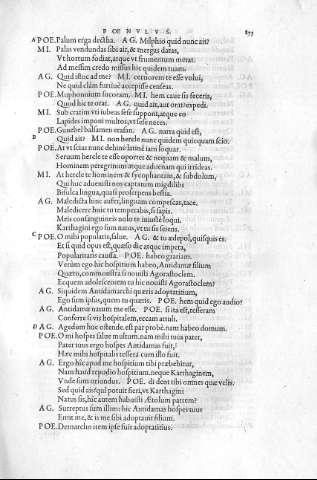 POENVLVS. 877
A POE. Palum erga dectha. AG. Milphio quid nunc ait?
MI. Palas vendundas sibi ait, & mergas datas,
Vt hortum fodiat, atque vt frumentum metat.
Ad messim credo missus hic quidem tuam.
AG. Quid istuc ad me? MI. certiorem te esse volui,
Ne quid clam furtiuè accepisse censeas.
POE. Muphonnium sucoram. MI. hem caue sis feceris,
Quod hic te orat. AG. quid ait, aut orat? expedi.
MI. Sub cratim vti iubeas sese supponi, atque eo
Lapides imponi multos, vt sese neces.
POE. Gunebel balsamen erasan. AG. narra quid est,
B Quid ait? MI. non hercle nunc quidem quicquam scio.
POE. At vt scias nunc dehinc latinè iam loquar.
Seruum hercle te esse oportet & nequam & malum,
Hominem peregrinum atque aduenam qui irrideas.
MI. At hercle te hominem & sycophantam, & subdolum,
Qui huc aduenisti nos captatum migdilibs
Bisulca lingua, quasi proserpens bestia.
AG. Maledicta hinc aufer, linguam compescas, tace.
Maledicere huic tu temperabis, si sapis.
Meis consanguineis nolo te iniustè loqui.
Karthagini ego sum natus, vt tu sis sciens.
C POE. O mi popularis, salue. AG. & tu edepol, quisquis es.
Et si quid opus est, quaeso dic atque impera,
Popularitatis caussa. POE. habeo gratiam.
Verùm ego hic hospitium habeo, Antidamae filium
Quaero, commonstra si nouisti Agorastoclem.
Ecquem adolescentem tu hic nouisti Agorastoclem?
AG. Siquidem Antidamarchi quaeris adoptatitium,
Ego sum ipsus, quem tu quaeris. POE. hem quid ego audio?
AG. Antidamae natum me esse. POE. si ita est, tesseram
Conferre si vis hospitalem, eccam attuli.
D AG. Agedum hoc ostende. est par probè. nam habeo domum.
POE. O mi hospes salue multum. nam mihi tuus pater,
Pater tuus ergo hospes Antidamas fuit,
Haec mihi hospitalis tessera cum illo fuit.
AG. Ergo hîc apud me hospitium tibi praebebitur,
Nam haud repudio hospitium, neque Karthaginem,
Vnde sum oriundus. POE. di dent tibi omnes quae velis.
Sed quid ais? quî potuit fieri, vt Karthagini
Natus sis, hîc autem habuisti Aetolum patrem?
AG. Surreptus sum illinc: hîc Antidamas hospes tuus
Emit me, & is me sibi adoptauit filium.
POE. Demarcho item ipse fuit adoptatitius.